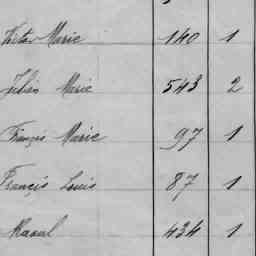 Victor Marie 140 1
Julien Marie 543 2
François Marie 97 1
Francis Louis 87 1
Raoul 434 1